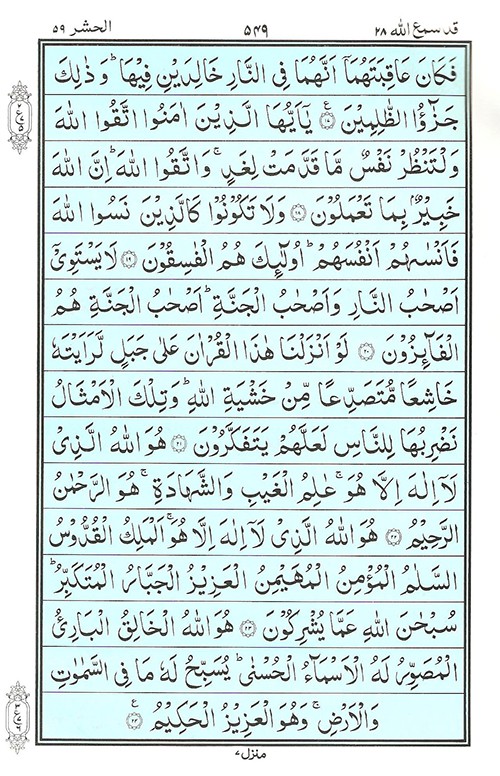 قد سمع الله ٢٨
٥٤٩
الحشر ٥٩
فَكَانَ عَاقِبَتَهُمَاۤ اَنَّهُمَا فِى النَّارِ خَالِدَيْنِ فِيْهَا ؕ وَ ذٰلِكَ
جَزٰٓؤُا الظّٰلِمِيْنَ ۟ۧ ١٧ يٰۤاَيُّهَا الَّذِيْنَ اٰمَنُوا اتَّقُوا اللّٰهَ
وَ لْتَنْظُرْ نَفْسٌ مَّا قَدَّمَتْ لِغَدٍ ۚ وَ اتَّقُوا اللّٰهَ ؕ اِنَّ اللّٰهَ
خَبِيْرٌۢ بِمَا تَعْمَلُوْنَ ١٨ وَ لَا تَكُوْنُوْا كَالَّذِيْنَ نَسُوا اللّٰهَ
فَاَنْسٰىهُمْ اَنْفُسَهُمْ ؕ اُولٰٓئِكَ هُمُ الْفٰسِقُوْنَ ١٩ لَا يَسْتَوِيْۤ
اَصْحٰبُ النَّارِ وَ اَصْحٰبُ الْجَنَّةِ ؕ اَصْحٰبُ الْجَنَّةِ هُمُ
الْفَآئِزُوْنَ ٢٠ لَوْ اَنْزَلْنَا هٰذَا الْقُرْاٰنَ عَلٰى جَبَلٍ لَّرَاَيْتَهٗ
خَاشِعًا مُّتَصَدِّعًا مِّنْ خَشْيَةِ اللّٰهِ ؕ وَ تِلْكَ الْاَمْثَالُ
نَضْرِبُهَا لِلنَّاسِ لَعَلَّهُمْ يَتَفَكَّرُوْنَ ٢١ هُوَ اللّٰهُ الَّذِيْ
لَاۤ اِلٰهَ اِلَّا هُوَ ۚ عٰلِمُ الْغَيْبِ وَ الشَّهَادَةِ ۚ هُوَ الرَّحْمٰنُ
الرَّحِيْمُ ٢٢ هُوَ اللّٰهُ الَّذِيْ لَاۤ اِلٰهَ اِلَّا هُوَ ۚ اَلْمَلِكُ الْقُدُّوْسُ
السَّلٰمُ الْمُؤْمِنُ الْمُهَيْمِنُ الْعَزِيْزُ الْجَبَّارُ الْمُتَكَبِّرُ ؕ
سُبْحٰنَ اللّٰهِ عَمَّا يُشْرِكُوْنَ ٢٣ هُوَ اللّٰهُ الْخَالِقُ الْبَارِئُ
الْمُصَوِّرُ لَهُ الْاَسْمَآءُ الْحُسْنٰى ؕ يُسَبِّحُ لَهٗ مَا فِى السَّمٰوٰتِ
وَ الْاَرْضِ ۚ وَ هُوَ الْعَزِيْزُ الْحَكِيْمُ ٢٤
منزل ٧